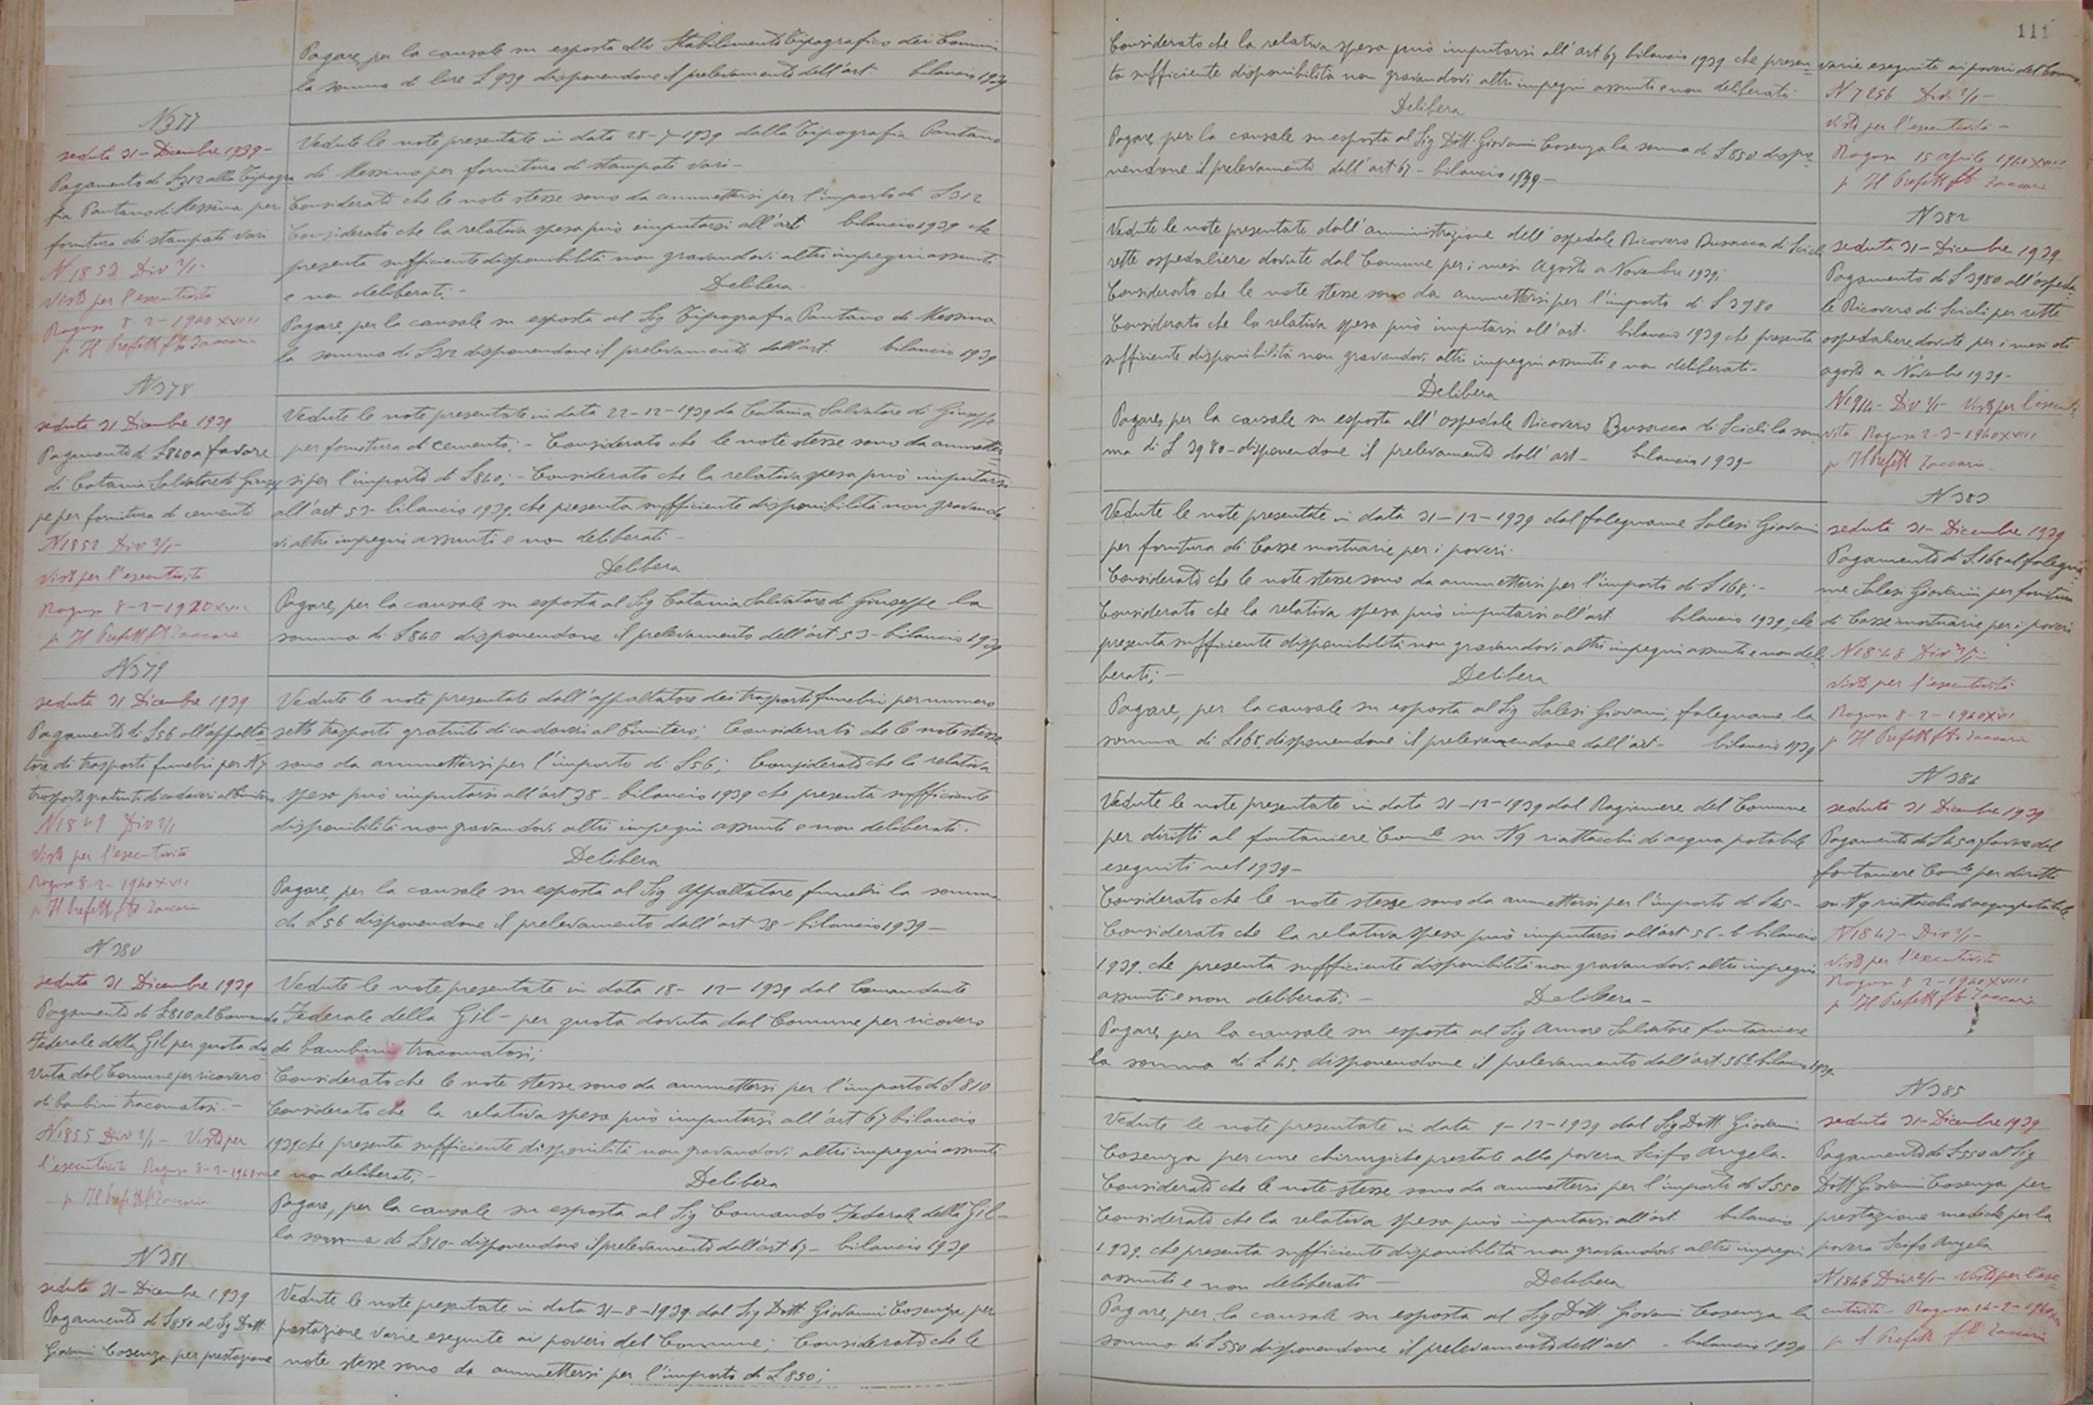 Pagare, per la causale su esposta allo Stabilimento Tipografico dei Comuni
la somma di lire £ 939 disponendone il prelevamento dall'art. bilancio 1939
N 377
seduta 31 - Dicembre 1939 -
Pagamento di £ 312 alla Tipogra
fia Pantano di Messina per
fornitura di stampati vari
N 1853 Div 2/1 -
Visto per l'esecutività
Ragusa 8 - 2 - 1940 XVIII
p Il Prefetto fto Zaccaria
Vedute le note presentate in data 28 - 7 - 1939 dalla Tipografia Pantano
di Messina per fornitura di stampati vari -
Considerato che le note stesse sono da ammettersi per l'importo di £ 312
Considerato che la relativa spesa può imputarsi all'art bilancio 1939 che
presenta sufficiente disponibilità non gravandovi altri impegni assunti
e non deliberati; -
Delibera
Pagare, per la causale su esposta al Sig Tipografia Pantano di Messina
la somma di £ 312 disponendone il prelevamento dall'art. bilancio 1939
N 378
seduta 31 Dicembre 1939
Pagamento di £ 840 a favore
di Catania Salvatore di Giusep
pe per fornitura di cemento
N 1852 Div 2/1 -
Visto per l'esecutività
Ragusa 8 - 2 - 1940 XVIII
p Il Prefetto fto Zaccaria
Vedute le note presentate in data 22 - 12 - 1939 da Catania Salvatore di Giuseppe
per fornitura di cemento; - Considerato che le note stesse sono da ammetter
si per l'importo di £ 840; - Considerato che la relativa spesa può imputarsi
all'art 53 - bilancio 1939, che presenta sufficiente disponibilità non gravando
vi altri impegni assunti e non deliberati -
Delibera
Pagare, per la causale su esposta al Sig Catania Salvatore di Giuseppe la
somma di £ 840 disponendone il prelevamento dell'art 53 - bilancio 1939
N 379
seduta 31 Dicembre 1939
Pagamento di £ 56 all'appalta
tore di trasporti funebri per N 7
trasporti gratuiti di cadaveri al Cimitero
N 1849 Div 2/1
Visto per l'esecutività
Ragusa 8 - 2 - 1940 XVIII
p Il Prefetto fto Zaccaria
Vedute le note presentate dall'appaltatore dei trasporti funebri per numero
sette trasporti gratuiti di cadaveri al Cimitero; Considerato che le note stesse
sono da ammettersi per l'importo di £ 56; Considerato che la relativa
spesa può imputarsi all'art 38 - bilancio 1939 che presenta sufficiente
disponibilità non gravandovi altri impegni assunti e non deliberati.
Delibera
Pagare, per la causale su esposta al Sig appaltatore funebri la somma
di £ 56 disponendone il prelevamento dall'art 38 - bilancio 1939 -
N 380
seduta 31 Dicembre 1939
Pagamento di £ 810 al Comando
Federale della Gil per quota do
vuta dal Comune per ricovero
di bambini tracomatosi. -
N 1855 Div 2/1 - Visto per
l'esecutività Ragusa 8 - 2 - 1940
p Il Prefetto fto Zaccaria
Vedute le note presentate in data 18 - 12 - 1939 dal Comandante
Federale della Gil - per quota dovuta dal Comune per ricovero
di bambini tracomatosi;
Considerato che le note stesse sono da ammettersi per l'importo di £ 810
Considerato che la relativa spesa può imputarsi all'art 67 bilancio
1939 che presenta sufficiente disponibilità non gravandovi altri impegni assunti
e non deliberati; -
Delibera
Pagare, per la causale su esposta al Sig Comando Federale della Gil -
la somma di £ 810 - disponendone il prelevamento dall'art 67 - bilancio 1939
N 381
seduta 31 - Dicembre 1939
Pagamento di £ 850 al Sig Dott.
Giovanni Cosenza per prestazione
Vedute le note presentate in data 31 - 8 - 1939 dal Sig Dott Giovanni Cosenza per
prestazione varie eseguite ai poveri del Comune; Considerato che le
note stesse sono da ammettersi per l'importo di £ 850;
111
Considerato che la relativa spesa può imputarsi all'art 67 bilancio 1939 che presen
ta sufficiente disponibilità non gravandovi altri impegni assunti e non deliberati
Delibera
Pagare, per la causale su esposta al Sig Dott Giovanni Cosenza la somma di £ 850 dispo
nendone il prelevamento dall'art 67 - bilancio 1939 -
varie eseguite ai poveri del Comune
N 7256 Div 2/1 -
Visto per l'esecutività -
Ragusa 15 aprile 1940 XVIII
p Il Prefetto fto Zaccaria
Vedute le note presentate dall'amministrazione dell'ospedale Ricovero Busacca di Scicli
rette ospedaliere dovute dal Comune per i mesi Agosto a Novembre 1939;
Considerato che le note stesse sono da ammettersi per l'importo di £ 3980
Considerato che la relativa spesa può imputarsi all'art. bilancio 1939 che presenta
sufficiente disponibilità non gravandovi altri impegni assunti e non deliberati -
Delibera
Pagare, per la causale su esposta all'ospedale Ricovero Busacca di Scicli la som
ma di £ 3980 - disponendone il prelevamento dall'art - bilancio 1939 -
N 382
seduta 31 - Dicembre 1939
Pagamento di £ 3980 all'ospeda
le Ricovero di Scicli per rette
ospedaliere dovute per i mesi di
agosto a Novembre 1939 -
N 1914 - Div 2/1 - Visto per l'esecuti
vità Ragusa 2 - 3 - 1940 XVIII
p Il Prefetto Zaccaria
Vedute le note presentate in data 31 - 12 - 1939 dal falegname Salesi Giovanni
per fornitura di Casse mortuarie per i poveri.
Considerato che le note stesse sono da ammettersi per l'importo di £ 168; -
Considerato che la relativa spesa può imputarsi all'art bilancio 1939, che
presenta sufficiente disponibilità non gravandovi altri impegni assunti e non deli
berati; -
Delibera
Pagare, per la causale su esposta al Sig Salesi Giovanni, falegname la
somma di £ 168 disponendone il prelevamendone dall'art - bilancio 1939
N 383
seduta 31 - Dicembre 1939
Pagamento di £ 168 al falegna
me Salesi Giovanni per fornitura
di Casse mortuarie per i poveri
N 1848 Div 2/1 -
Visto per l'esecutività
Ragusa 8 - 2 - 1940 XVIII
p Il Prefetto fto Zaccaria
Vedute le note presentate in data 31 - 12 - 1939 dal Ragioniere del Comune
per diritti al fontaniere Com.le su N 9 riattacchi di acqua potabile
eseguiti nel 1939 -
Considerato che le note stesse sono da ammettersi per l'importo di £ 45 -
Considerato che la relativa spesa può imputarsi all'art 56 - b bilancio
1939, che presenta sufficiente disponibilità non gravandovi altri impegni
assunti e non deliberati; -
Delibera -
Pagare, per la causale su esposta al Sig Amore Salvatore fontaniere
la somma di £ 45, disponendone il prelevamento dall'art. 56 b bilancio 1939
N 384
seduta 31 Dicembre 1939
Pagamento di £ 45 a favore del
fontaniere Com.le per diritti
su N 9 riattacchi di acqua potabile
N 1847 - Div 2/1 -
Visto per l'esecutività
Ragusa 8 2 - 1940 XVIII
p Il Prefetto fto Zaccaria
Vedute le note presentate in data 9 - 12 - 1939 dal Sig Dott Giovanni
Cosenza per cure chirurgiche prestate alla povera Scifo Angela.
Considerato che le note stesse sono da ammettersi per l'importo di £ 550
Considerato che la relativa spesa può imputarsi all'art. bilancio
1939, che presenta sufficiente disponibilità non gravandovi altri impegni
assunti e non deliberati -
Delibera
Pagare, per la causale su esposta al Sig Dott Giovanni Cosenza la
somma di £ 550 disponendone il prelevamento dell'art - bilancio 1939
N 385
seduta 31 - Dicembre 1939
Pagamento di £ 550 al Sig
Dott Giovanni Cosenza per
prestazione mediche per la
povera Scifo Angela
N 1846 Div 2/1 - Visto per l'ese
cutività - Ragusa 14 - 2 - 1940
p Il Prefetto fto Zaccaria